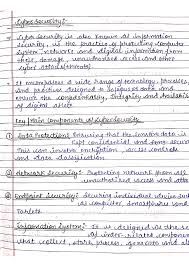 Cyber Security :-
Cyber Security is also known as information
security, is the practice of protecting computer
system, network and digital information from
theft, damage, unauthorized access and other
cyber
It encompasses a wide range of technology, processes,
and practices designed to safeguard data and
ensure the confidentiality, Integrity and Availability
of digital assets.
Key Main Components of CyberSecurity
① Data Protection: Ensuring that the sensitive data is
kept confidential and some secure
This can involve encryption, access controls
and data classification
② Network Security: Protecting network from all
unauthorized access and attack
③ Endpoint Security: Securing individual devices such
as computer, smartphones and
Tablets
Information System: It is designed as the set
of inter-related components
that collect, store, process, generate and